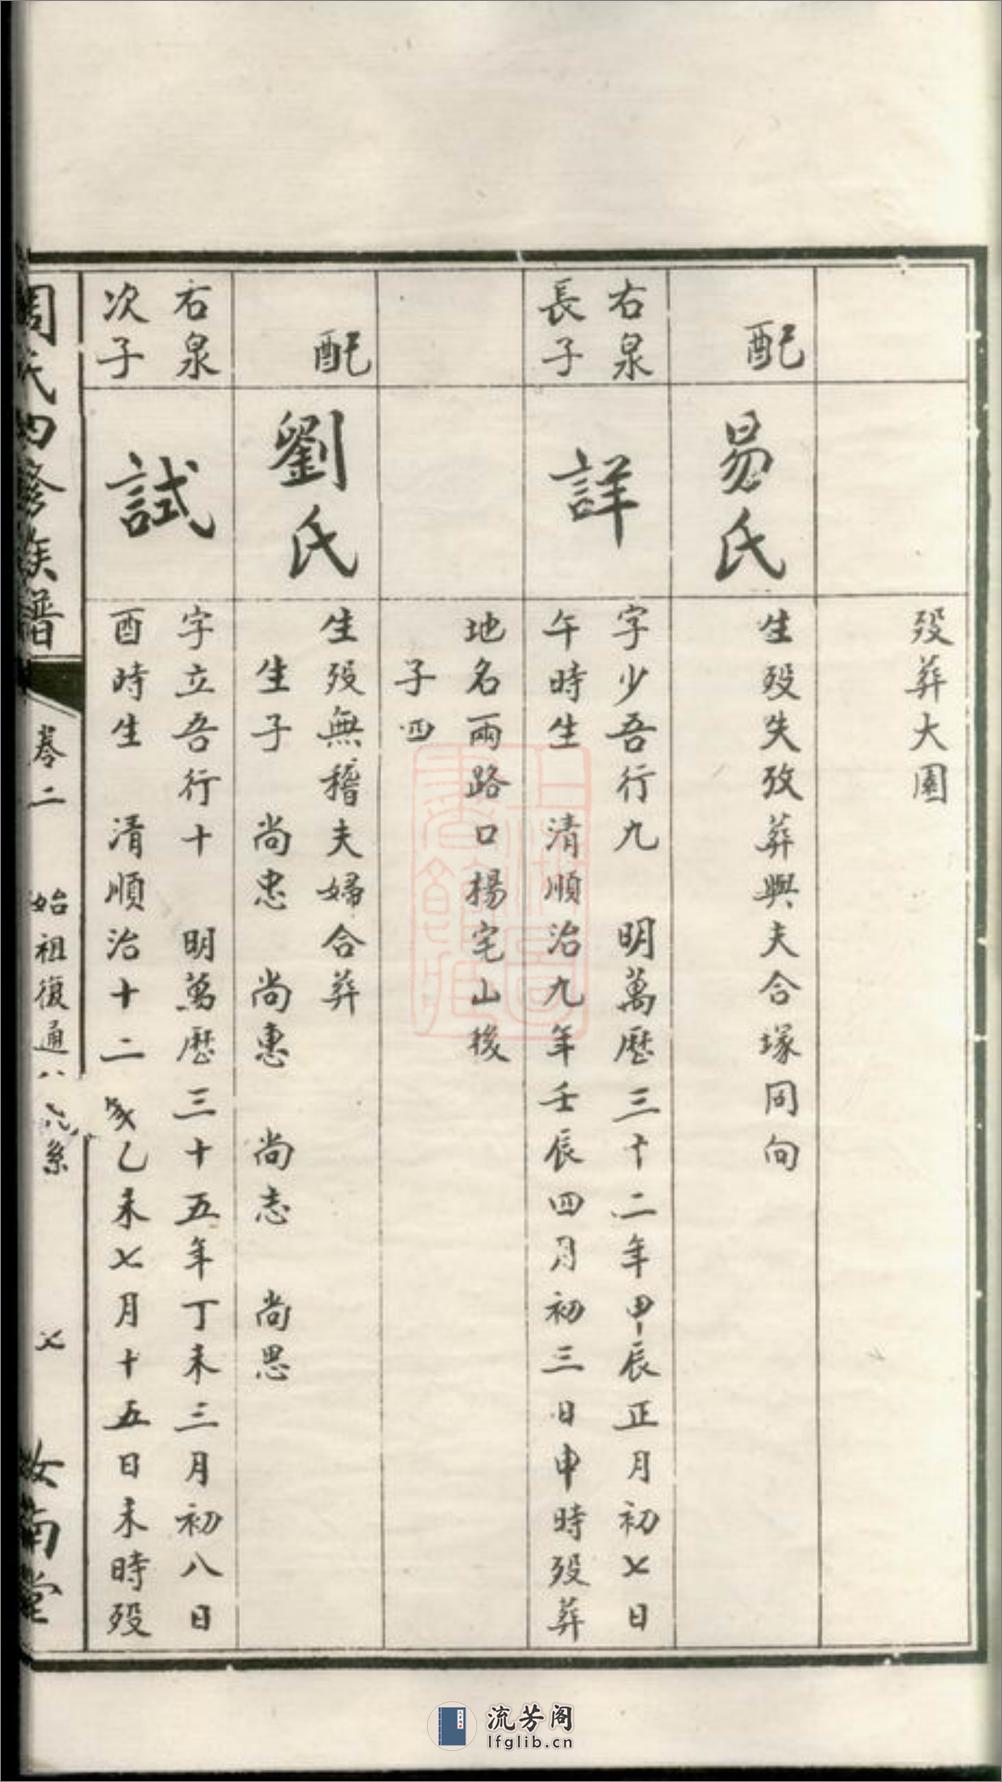 歿葬大園
配
易氏
生歿失攷葬與夫合塚同向
右泉
長子
詳
字少吾行九 明萬歷三十二年甲辰正月初七日
午時生 清順治九年壬辰四月初三日申時歿葬
地名兩路口楊宅山後
子四
配
劉氏
生歿無稽夫婦合葬
生子 尚忠 尚惠 尚志 尚思
右泉
次子
試
字立吾行十 明萬歷三十五年丁未三月初八日
酉時生 清順治十二歲乙未七月十五日未時歿
周氏四修族譜
卷二 始祖復通 系
七
汝南堂
流芳阁
lfglib.cn